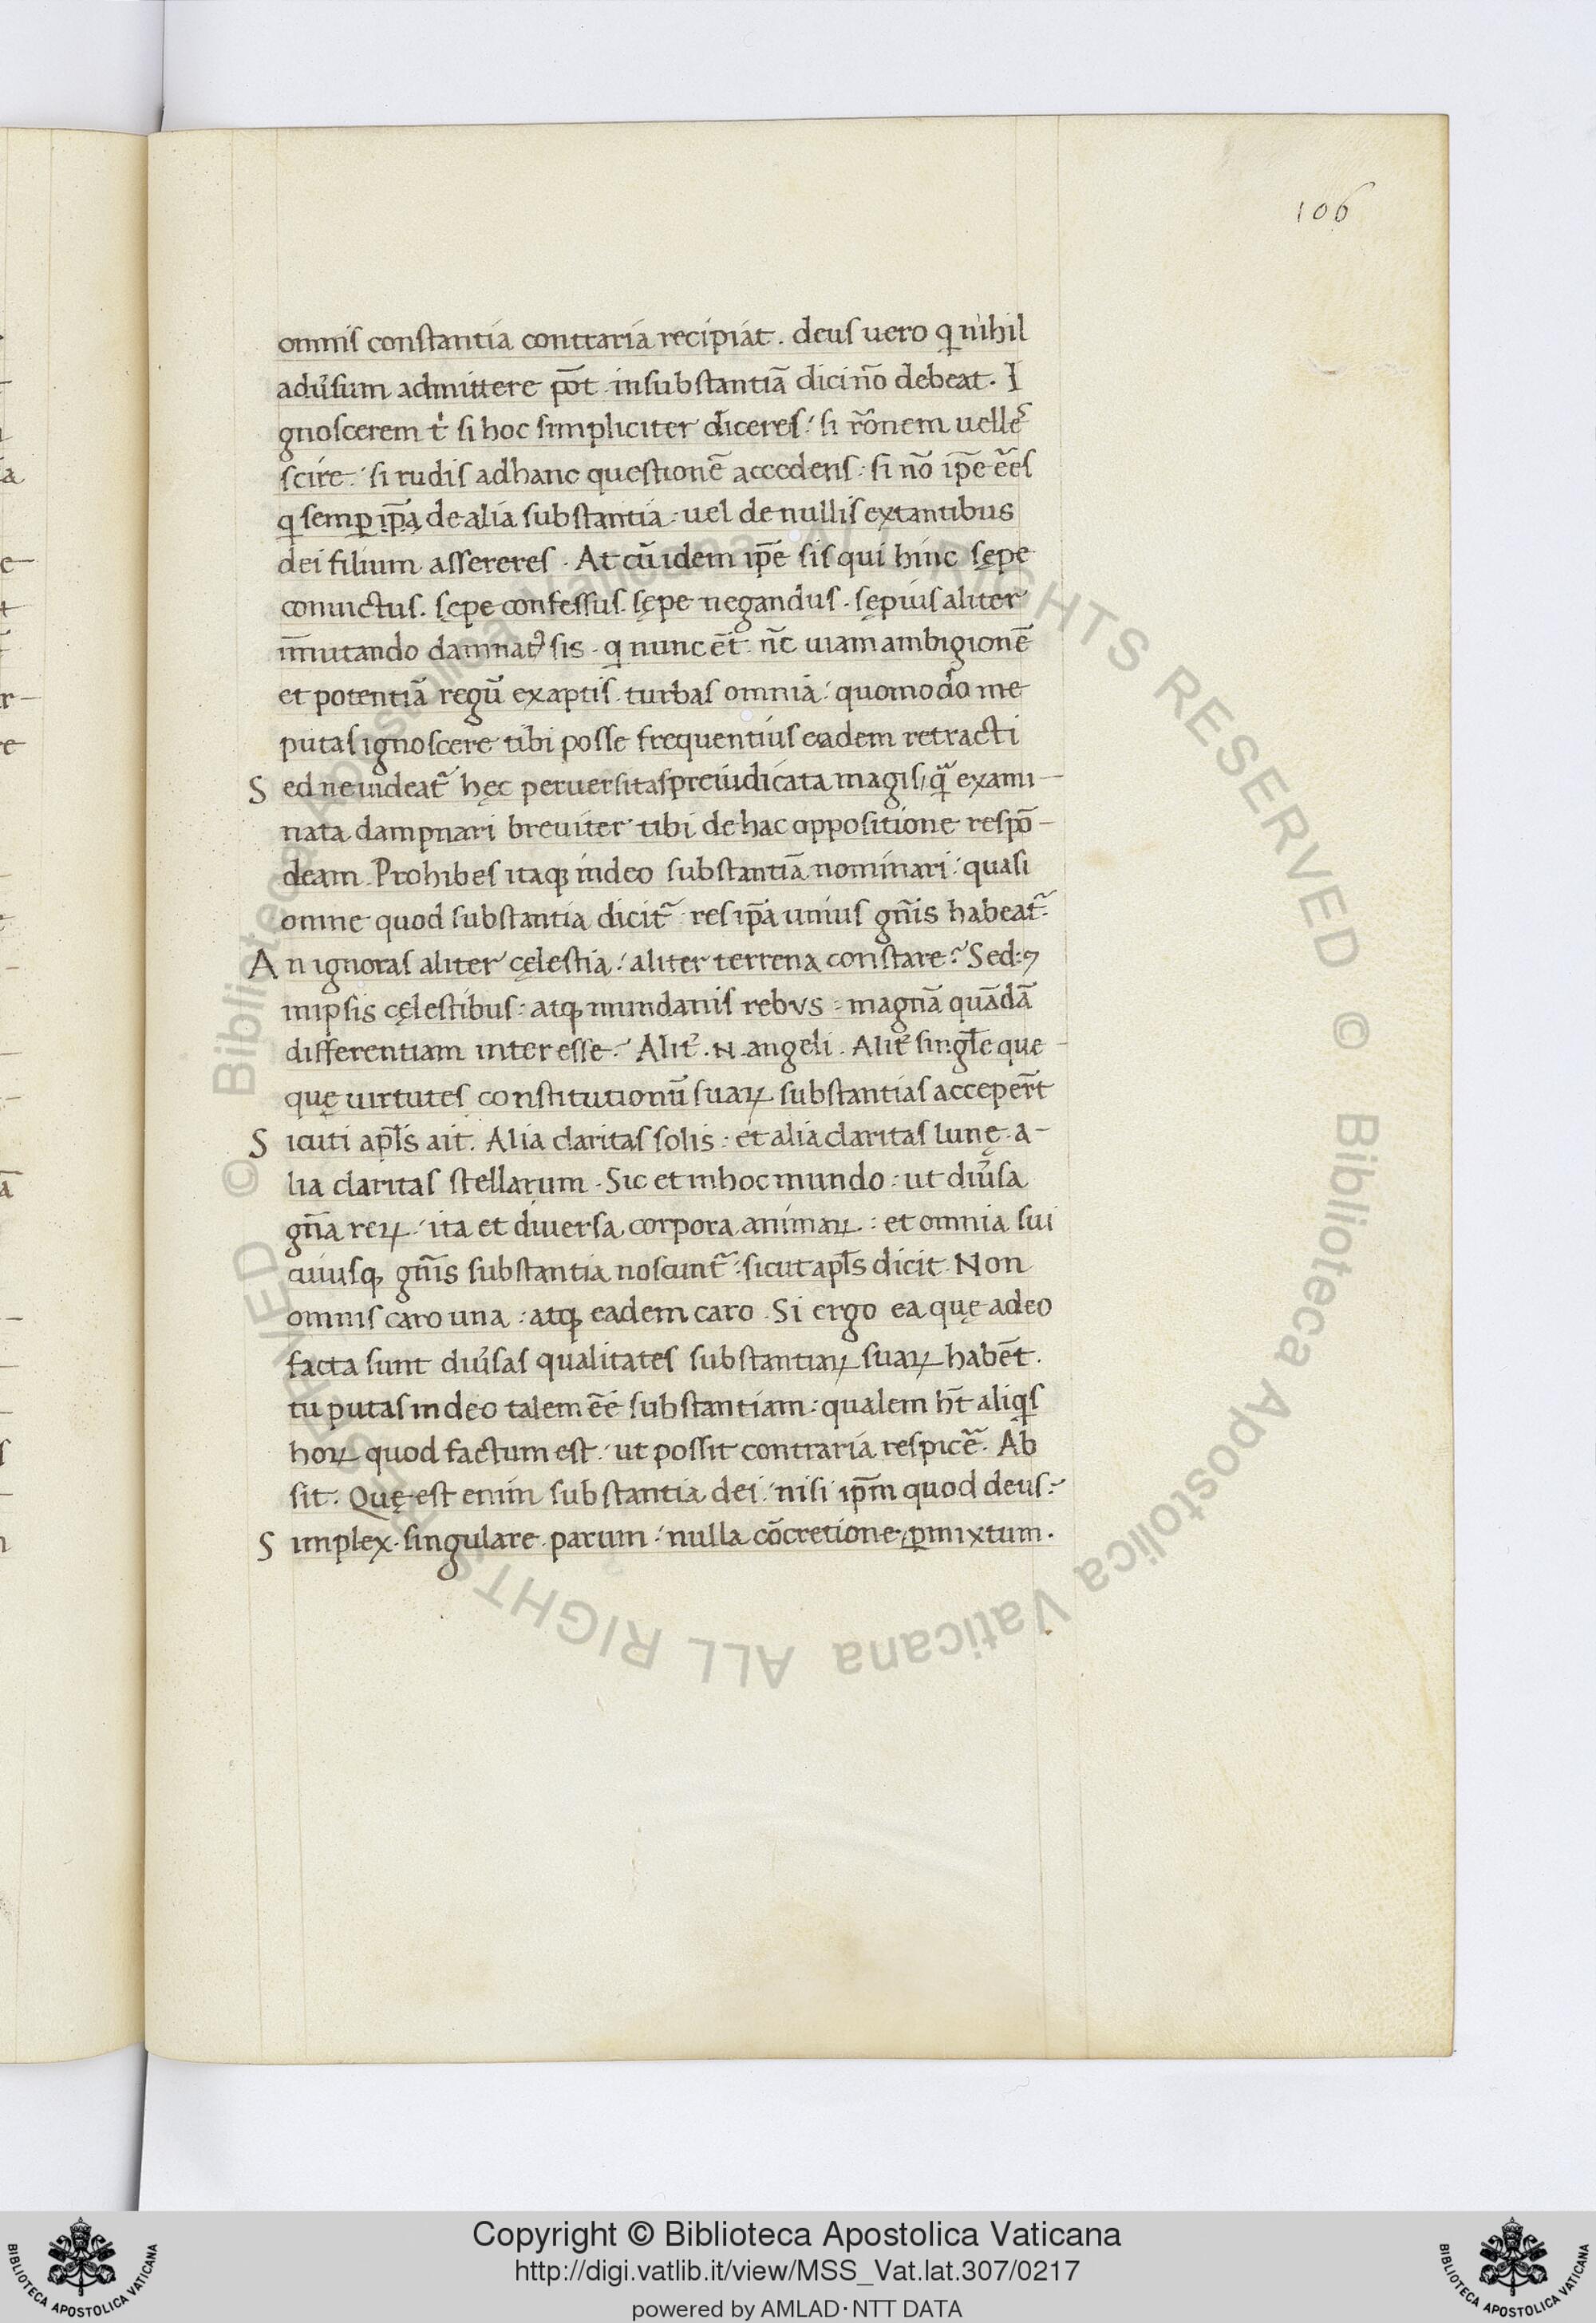 106
omnis constantia contraria recipiat. deus uero q nihil
adũsum admittere põt insubstantiã dici nõ debeat. I
gnoscerem t' si hoc simpliciter diceres: si rõnem uelles
scire: si rudis adhanc questionẽ accedens: si nõ ip̃e eẽs
q semp ip̃ą de alia substantia: uel de nullis extantibus
dei filium assereres. At cũ idem ip̃e sis qui hinc sępe
conuictus. sępe confessus. sępe negandus. sępius aliter
ĩmutando damnat9 sis. q nunc ẽt. nc̃ uiam ambigionẽ
et potentiã regũ exaptis. turbas omnia: quomodo me
putas ignoscere tibi posse frequentius eadem retracti
S ed ne uideat᷑ hęc peruersitas preiudicata magis, q̃ exami-
nata dampnari breuiter tibi de hac oppositione respõ-
deam. Prohibes itaqꝫ indeo substantiã nominari: quasi
omne quod substantia dicit᷑ res ip̃a unius gñis habeat᷑.
A n ignoras aliter cęlestia: aliter terrena constare? Sed: ⁊
inipsis cęlestibus: atqꝫ mundanis rebus: magnã quãdã
differentiam interesse? Alit᷑. N. angeli. Alit᷑ singl̃e que-
quę uirtutes constitutionũ suaꝝ substantias acceper̃t
S icuti apl̃s ait. Alia claritas solis: et alia claritas lunę. a-
lia claritas stellarum. Sic et inhoc mundo: ut diũsa
gñа reꝝ: ita et diuersa corpora animaꝝ: et omnia sui
cuiusqꝫ gñis substantia noscunt᷑: sicut apl̃s dicit. Non
omnis caro una: atqꝫ eadem caro. Si ergo ea quę adeo
facta sunt diũsas qualitates substantiaꝝ suaꝝ habẽt.
tu putas indeo talem eẽ substantiam: qualem ht̃ aliqs
hoꝝ quod factum est: ut possit contraria respicẽ. Ab
sit. Quę est enim substantia dei: nisi ip̃m quod deus:
S implex. singulare. parum: nulla cõcretione ꝑmixtum.
© Biblioteca Apostolica Vaticana ALL RIGHTS RESERVED © Biblioteca Apostolica Vaticana ALL RIGHTS RESERVED
Copyright © Biblioteca Apostolica Vaticana
http://digi.vatlib.it/view/MSS_Vat.lat.307/0217
powered by AMLAD·NTT DATA
BIBLIOTECA APOSTOLICA VATICANA
BIBLIOTECA APOSTOLICA VATICANA